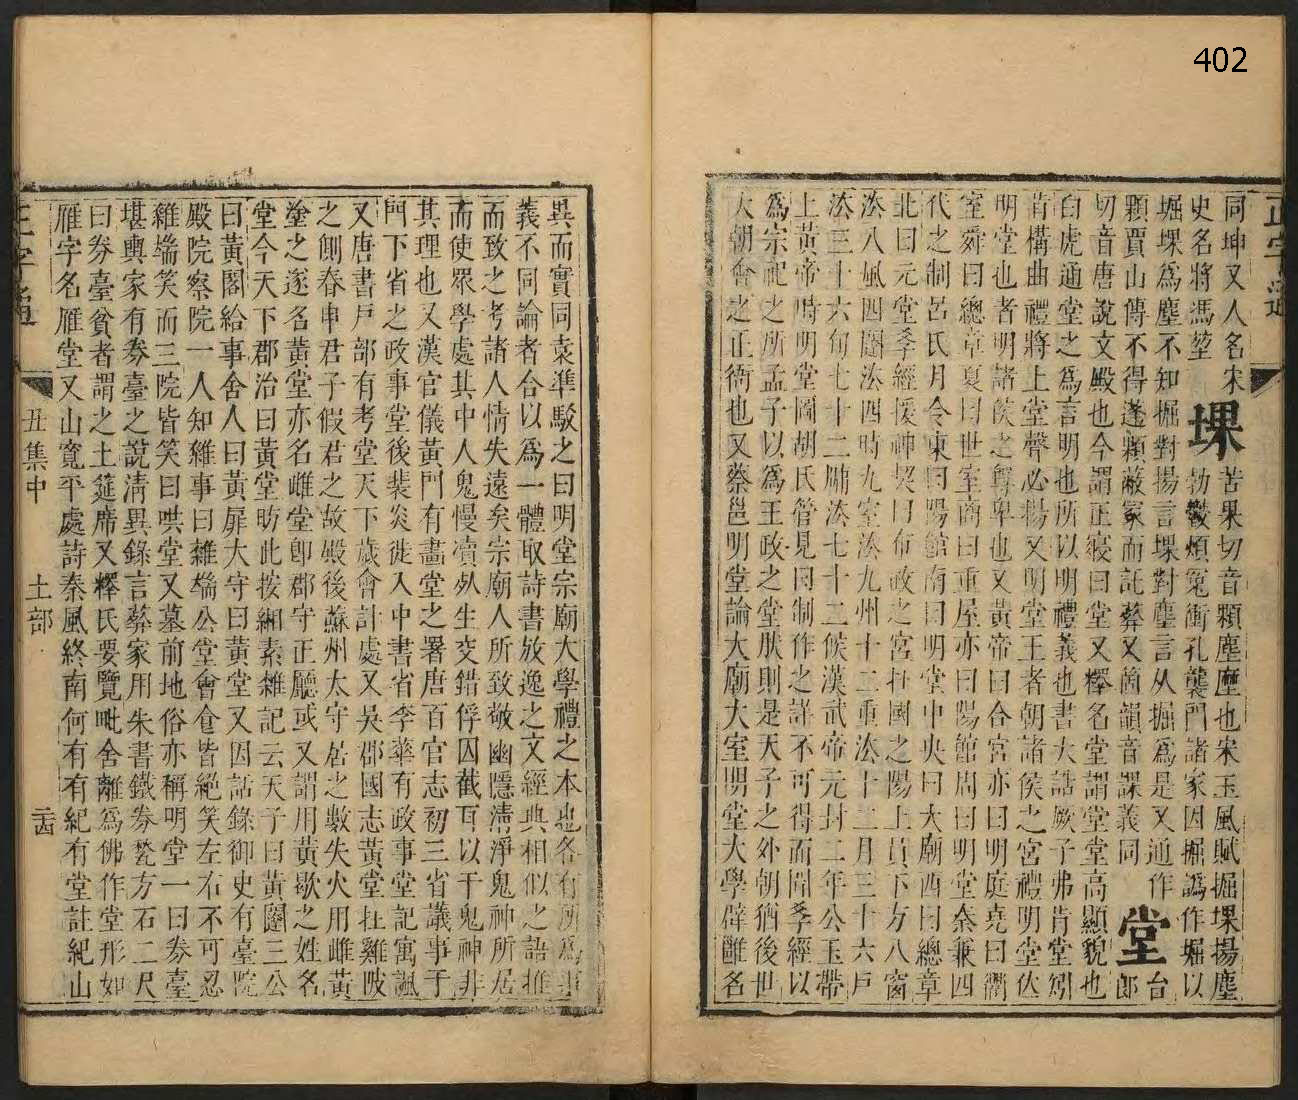 402
同坤又人名宋
史名將馮堃
堁
苦果切音顆塵壓也宋玉風賦掘堁揚塵
勃鬱煩冤衝孔襲門諸家因掘譌作堀以
堀堁爲塵不知掘對揚言堁對塵言从掘爲是又通作
顆賈山傳不得蓬顆蔽冢而託葬又箇韻音課義同
堂
台郎
切音唐說文殿也今謂正寢曰堂又釋名堂謂堂堂高顯貌也
白虎通堂之爲言明也所以明禮義也書大誥厥子弗肯堂矧
肯構曲禮將上堂聲必揚又明堂王者朝諸侯之宮禮明堂位
明堂也者明諸侯之尊卑也又黃帝曰合宮亦曰明庭堯曰衢
室舜曰總章夏曰世室商曰重屋亦曰陽館周曰明堂秦兼四
代之制呂氏月令東曰陽館南曰明堂中央曰大廟西曰總章
北曰元堂孝經援神契曰布政之宮在國之陽上員下方八窗
法八風四闥法四時九室法九州十二重法十二月三十六戶
法三十六旬七十二牖法七十二候漢武帝元封二年公玉帶
上黃帝時明堂圖胡氏管見曰制作之詳不可得而聞孝經以
爲宗祀之所孟子以爲王政之堂朕則是天子之外朝猶後世
大朝會之正衙也又蔡邕明堂論大廟大室明堂大學辟雝名
異而實同袁準駁之曰明堂宗廟大學禮之本也各有所爲事
義不同論者合以爲一體取詩書放逸之文經典相似之語推
而致之考諸人情失遠矣宗廟人所致敬幽隱淸淨鬼神所居
而使眾學處其中人鬼慢凟死生交錯俘囚截耳以干鬼神非
其理也又漢官儀黃門有畫堂之署唐百官志初三省議事于
門下省之政事堂後裴炎徙入中書省李華有政事堂記寓諷
又唐書戶部有考堂天下歲會計處又吳郡國志黃堂在雞陂
之側春申君子假君之故殿後蘇州太守居之數失火用雌黃
塗之遂名黃堂亦名雌堂卽郡守正廳或又謂用黃歇之姓名
堂今天下郡治曰黃堂昉此按緗素雜記云天子曰黃闥三公
曰黃閣給事舍人曰黃扉大守曰黃堂又因話錄御史有臺院
殿院察院一人知雜事曰雜端公堂會食皆絕笑左右不可忍
雜端笑而三院皆笑曰哄堂又墓前地俗亦稱明堂一曰劵臺
堪輿家有劵臺之說淸異錄言葬家用朱書鐵劵甃方石二尺
曰劵臺貧者謂之土筵席又釋氏要覽毗舍離爲佛作堂形如
雁字名雁堂又山寬平處詩秦風終南何有有紀有堂註紀山
正字通
丑集中
土部